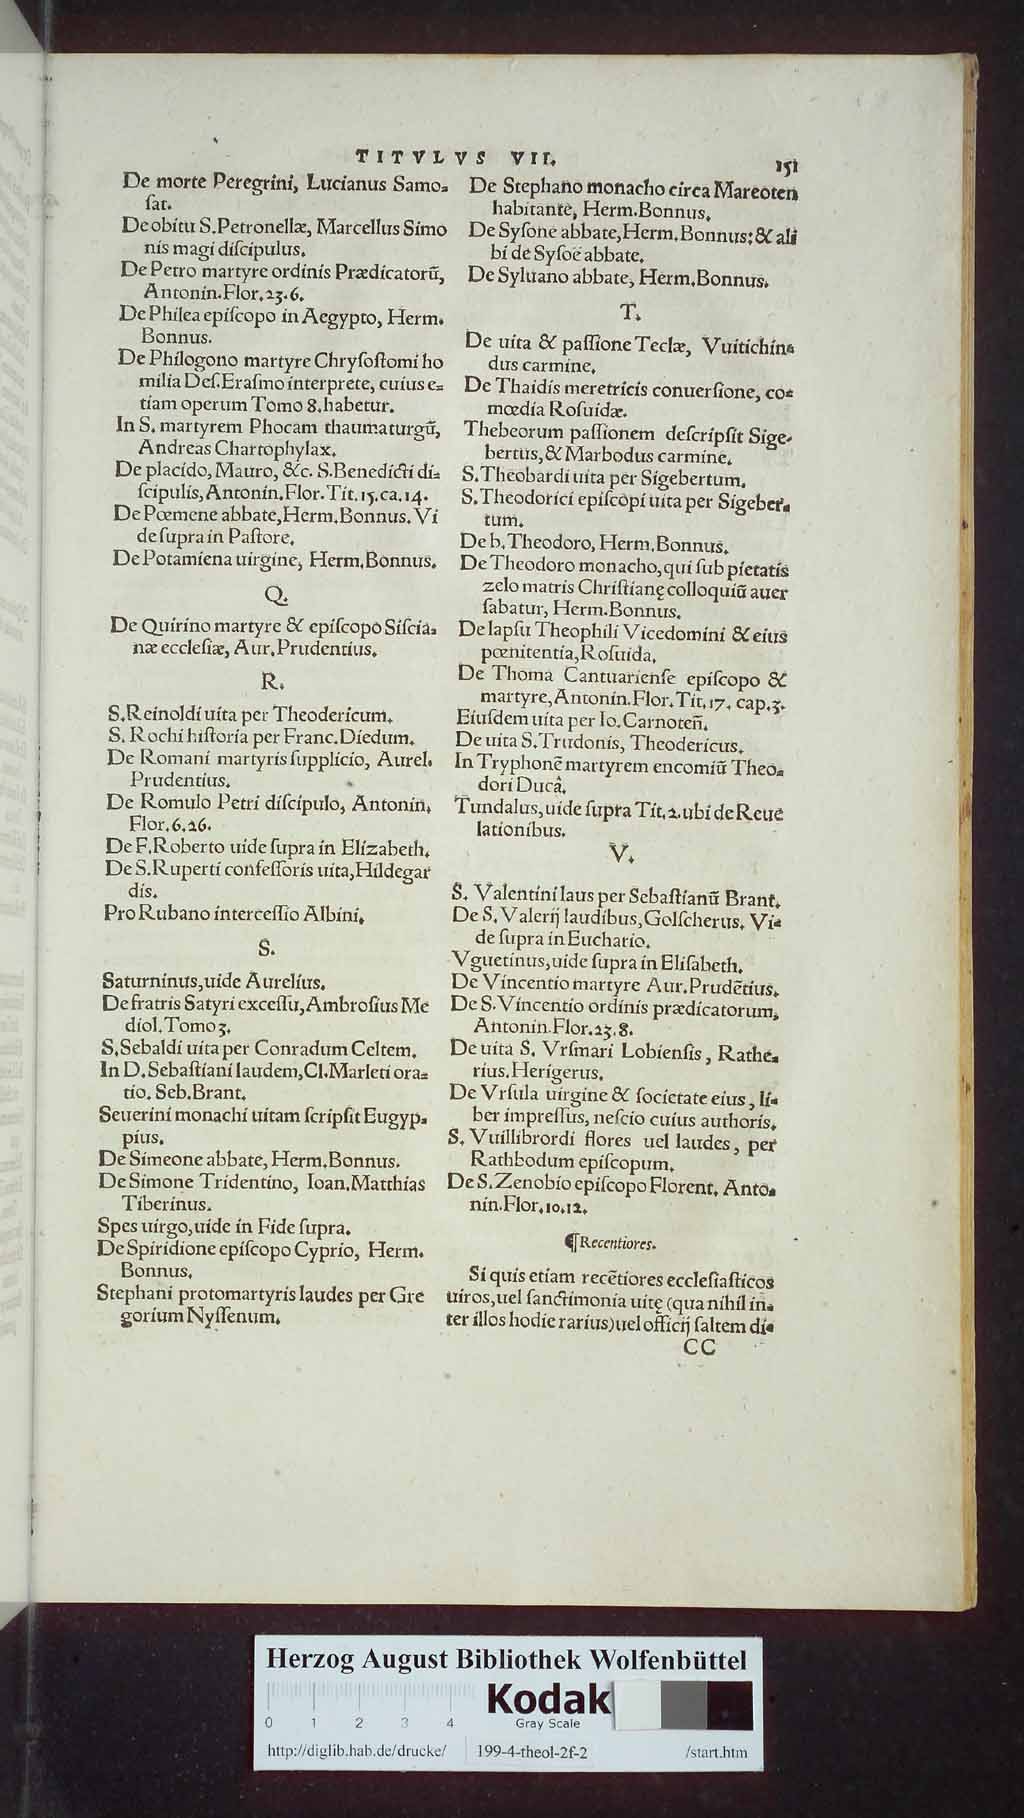 TITVLVS VII. 151
De morte Peregrini, Lucianus Samo-
ſat.
De obitu S. Petronellæ, Marcellus Simo
nis magi diſcipulus.
De Petro martyre ordinis Prædicatorũ,
Antonin. Flor. 23. 6.
De Philea epiſcopo in Aegypto, Herm.
Bonnus.
De Philogono martyre Chryſoſtomi ho
milia Deſ. Eraſmo interprete, cuius e-
tiam operum Tomo 8. habetur.
In S. martyrem Phocam thaumaturgũ,
Andreas Chartophylax.
De placido, Mauro, &c. S. Benedicti di-
ſcipulis, Antonin. Flor. Tit. 15. ca. 14.
De Pœmene abbate, Herm. Bonnus. Vi
de ſupra in Paſtore.
De Potamiena uirgine, Herm. Bonnus.
Q.
De Quirino martyre & epiſcopo Siſcia-
næ eccleſiæ, Aur. Prudentius.
R.
S. Reinoldi uita per Theodericum.
S. Rochi hiſtoria per Franc. Diedum.
De Romani martyris ſupplicio, Aurel.
Prudentius.
De Romulo Petri diſcipulo, Antonin.
Flor. 6. 26.
De F. Roberto uide ſupra in Elizabeth.
De S. Ruperti confeſſoris uita, Hildegar
dis.
Pro Rubano interceſſio Albini.
S.
Saturninus, uide Aurelius.
De fratris Satyri exceſſu, Ambroſius Me
diol. Tomo 3.
S. Sebaldi uita per Conradum Celtem.
In D. Sebaſtiani laudem, Cl. Marleti ora-
tio. Seb. Brant.
Seuerini monachi uitam ſcripſit Eugyp-
pius.
De Simeone abbate, Herm. Bonnus.
De Simone Tridentino, Ioan. Matthias
Tiberinus.
Spes uirgo, uide in Fide ſupra.
De Spiridione epiſcopo Cyprio, Herm.
Bonnus.
Stephani protomartyris laudes per Gre
gorium Nyſſenum.
De Stephano monacho circa Mareoten
habitante, Herm. Bonnus.
De Syſone abbate, Herm. Bonnus: & ali
bi de Syſoë abbate.
De Syluano abbate, Herm. Bonnus.
T.
De uita & paſſione Teclæ, Vuitichin-
dus carmine.
De Thaidis meretricis conuerſione, co-
mœdia Roſuidæ.
Thebeorum paſſionem deſcripſit Sige-
bertus, & Marbodus carmine.
S. Theobardi uita per Sigebertum.
S. Theodorici epiſcopi uita per Sigeber-
tum.
De b. Theodoro, Herm. Bonnus.
De Theodoro monacho, qui ſub pietatis
zelo matris Chriſtianę colloquiũ auer
ſabatur, Herm. Bonnus.
De lapſu Theophili Vicedomini & eius
pœnitentia, Roſuida.
De Thoma Cantuarienſe epiſcopo &
martyre, Antonin. Flor. Tit. 17. cap. 3.
Eiuſdem uita per Io. Carnoteñ.
De uita S. Trudonis, Theodericus.
In Tryphonẽ martyrem encomiũ Theo-
dori Ducâ.
Tundalus, uide ſupra Tit. 2. ubi de Reue
lationibus.
V.
S. Valentini laus per Sebaſtianũ Brant.
De S. Valerij laudibus, Golſcherus. Vi-
de ſupra in Euchario.
Vguetinus, uide ſupra in Eliſabeth.
De Vincentio martyre Aur. Prudẽtius.
De S. Vincentio ordinis prædicatorum,
Antonin. Flor. 23. 8.
De uita S. Vrſmari Lobienſis, Rathe-
rius. Herigerus.
De Vrſula uirgine & ſocietate eius, li-
ber impreſſus, neſcio cuius authoris.
S. Vuillibrordi flores uel laudes, per
Rathbodum epiſcopum.
De S. Zenobio epiſcopo Florent. Anto-
nin. Flor. 10. 12.
¶ Recentiores.
Si quis etiam recẽtiores eccleſiaſticos
uiros, uel ſanctimonia uitę (qua nihil in-
ter illos hodie rarius) uel officij ſaltem di-
CC
Herzog August Bibliothek Wolfenbüttel
0 1 2 3 4
Kodak
Gray Scale
http://diglib.hab.de/drucke/ 199-4-theol-2f-2 /start.htm